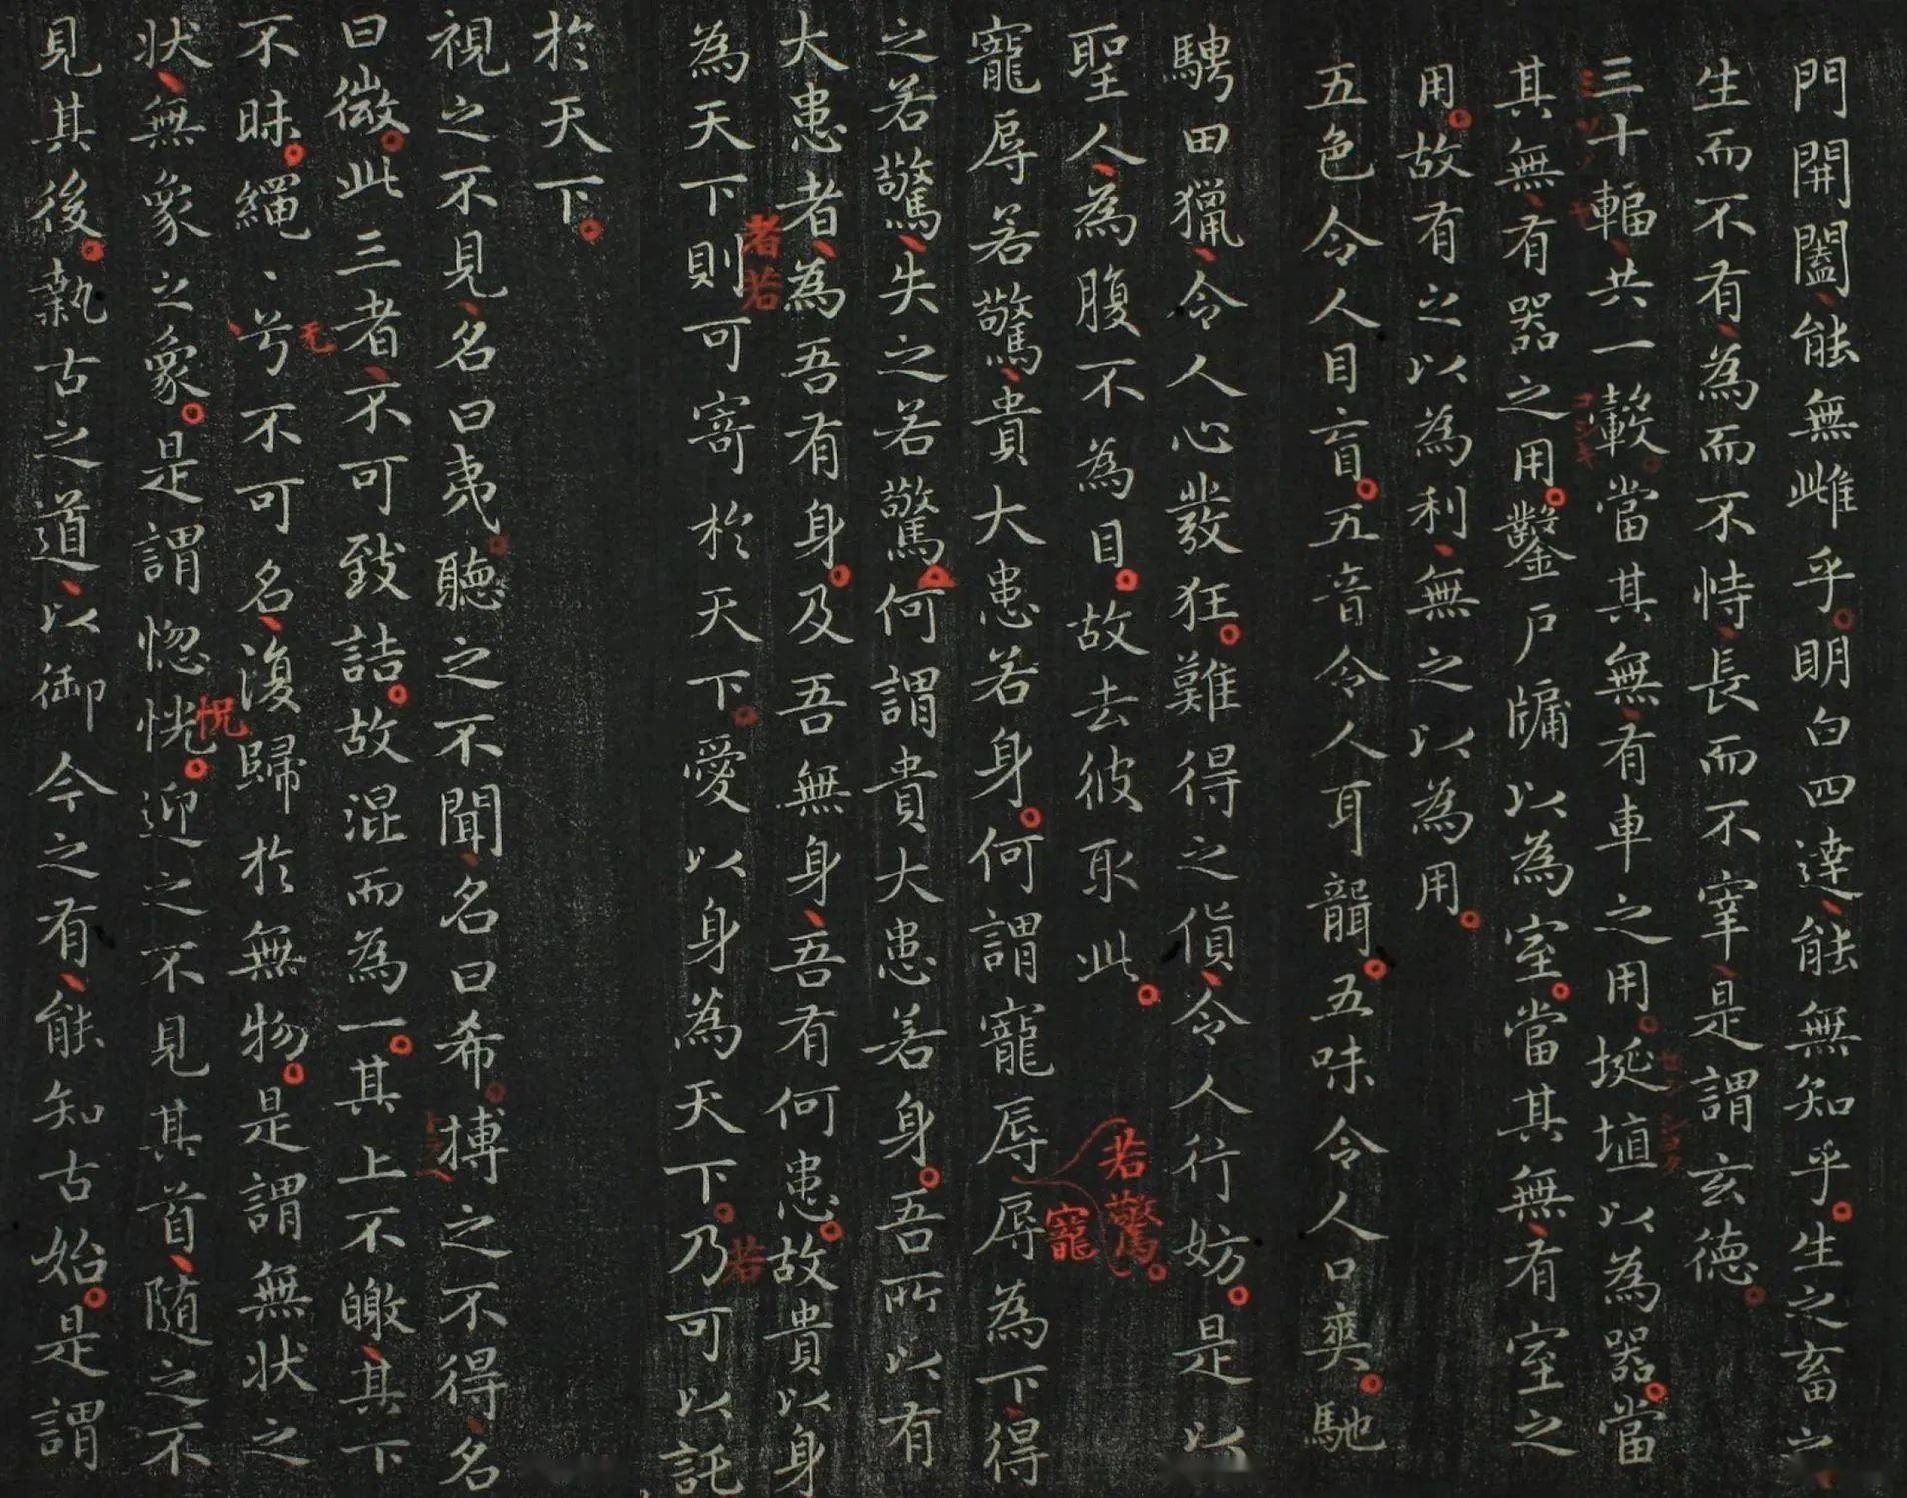 門開闔能無雌乎明白四達能無知乎生之畜之
生而不有為而不恃長而不宰是謂玄德
三十輻共一轂當其無有車之用埏埴以為器當
其無有器之用鑿戶牖以為室當其無有室之
用故有之以為利無之以為用
五色令人目盲五音令人耳聾五味令人口爽馳
騁田獵令人心發狂難得之貨令人行妨是以
聖人為腹不為目故去彼取此
若驚
寵
寵辱若驚貴大患若身何謂寵辱辱為下得
之若驚失之若驚何謂貴大患若身吾所以有
大患者為吾有身及吾無身吾有何患故貴以身
者若
若
為天下則可寄於天下愛以身為天下乃可以託
於天下
視之不見名曰夷聽之不聞名曰希搏之不得名
曰微此三者不可致詰故混而為一其上不皦其下
无
不昧繩〻兮不可名復歸於無物是謂無状之
怳
状無象之象是謂惚恍迎之不見其首随之不
見其後執古之道以御今之有能知古始是謂